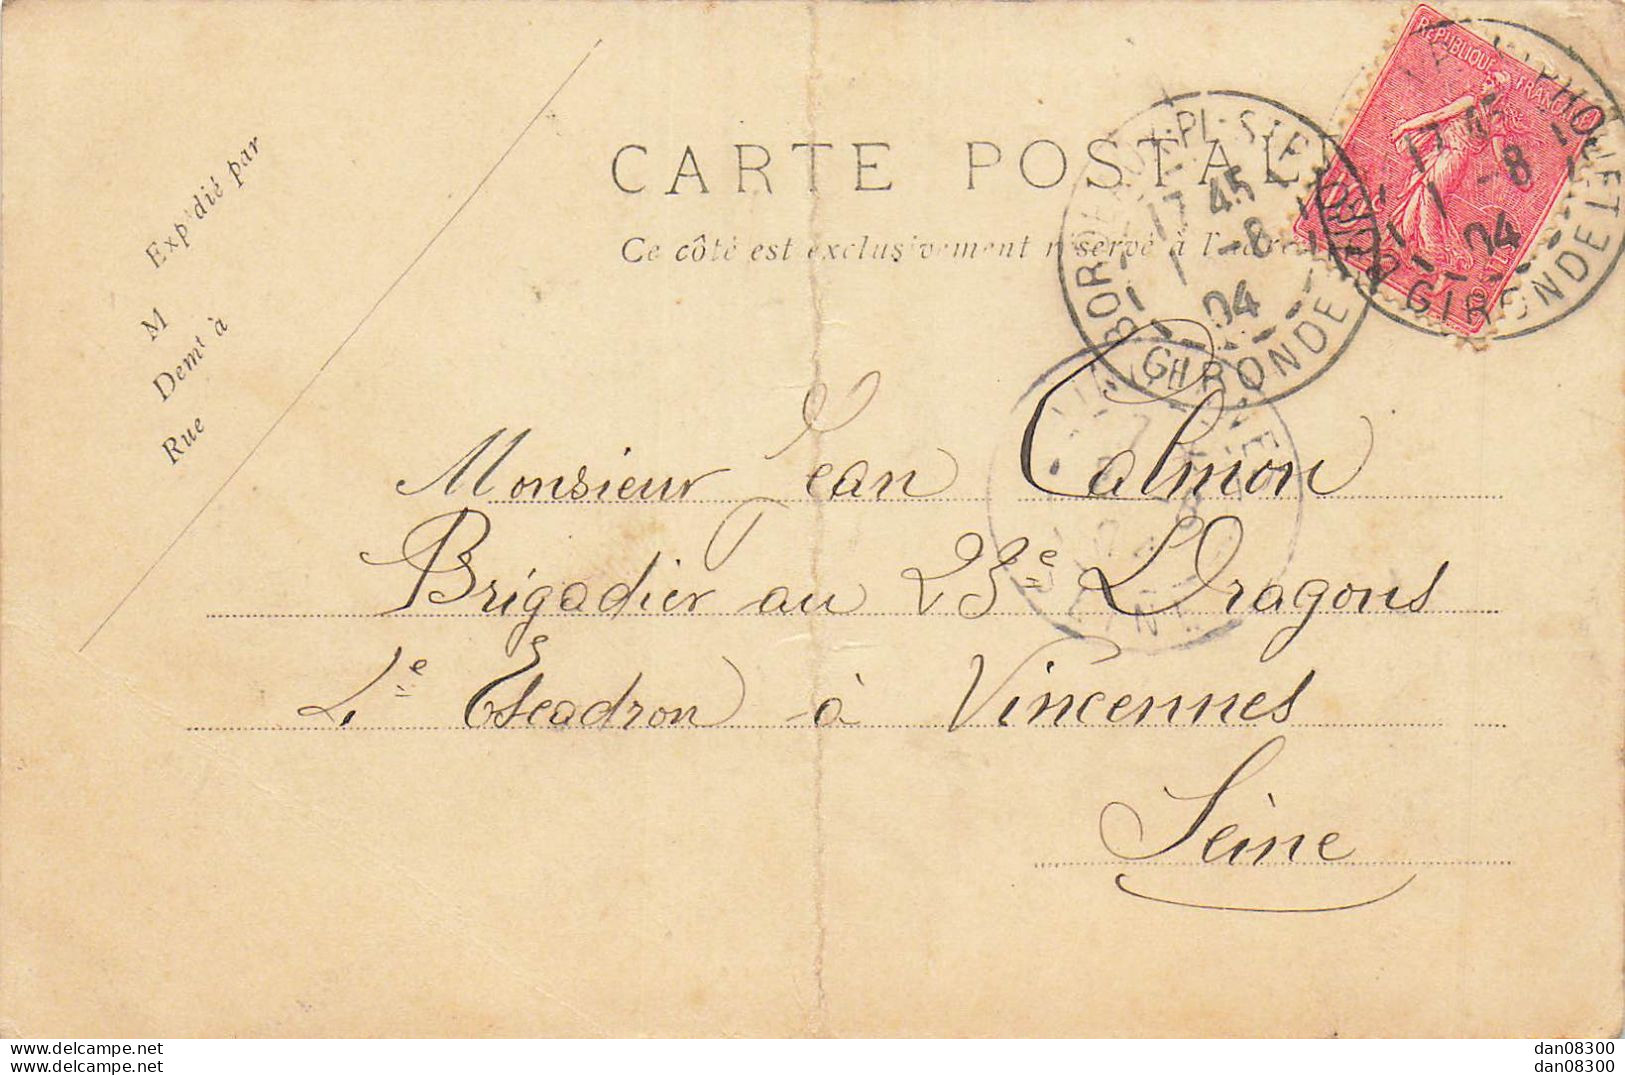 RÉPUBLIQUE FRANÇAISE
BORDEAUX-PL-STE
17 45
1 -8
04
GIRONDE
17 45
1 -8
04
GIRONDE
CARTE POSTALE
Ce côté est exclusivement réservé à l'adresse
Expédié par
M
Demt à
Rue
Monsieur Jean Calmon
Brigadier au 23e Dragons
4e Escadron à Vincennes
Seine
www.delcampe.net
www.delcampe.net
dan08300
dan08300